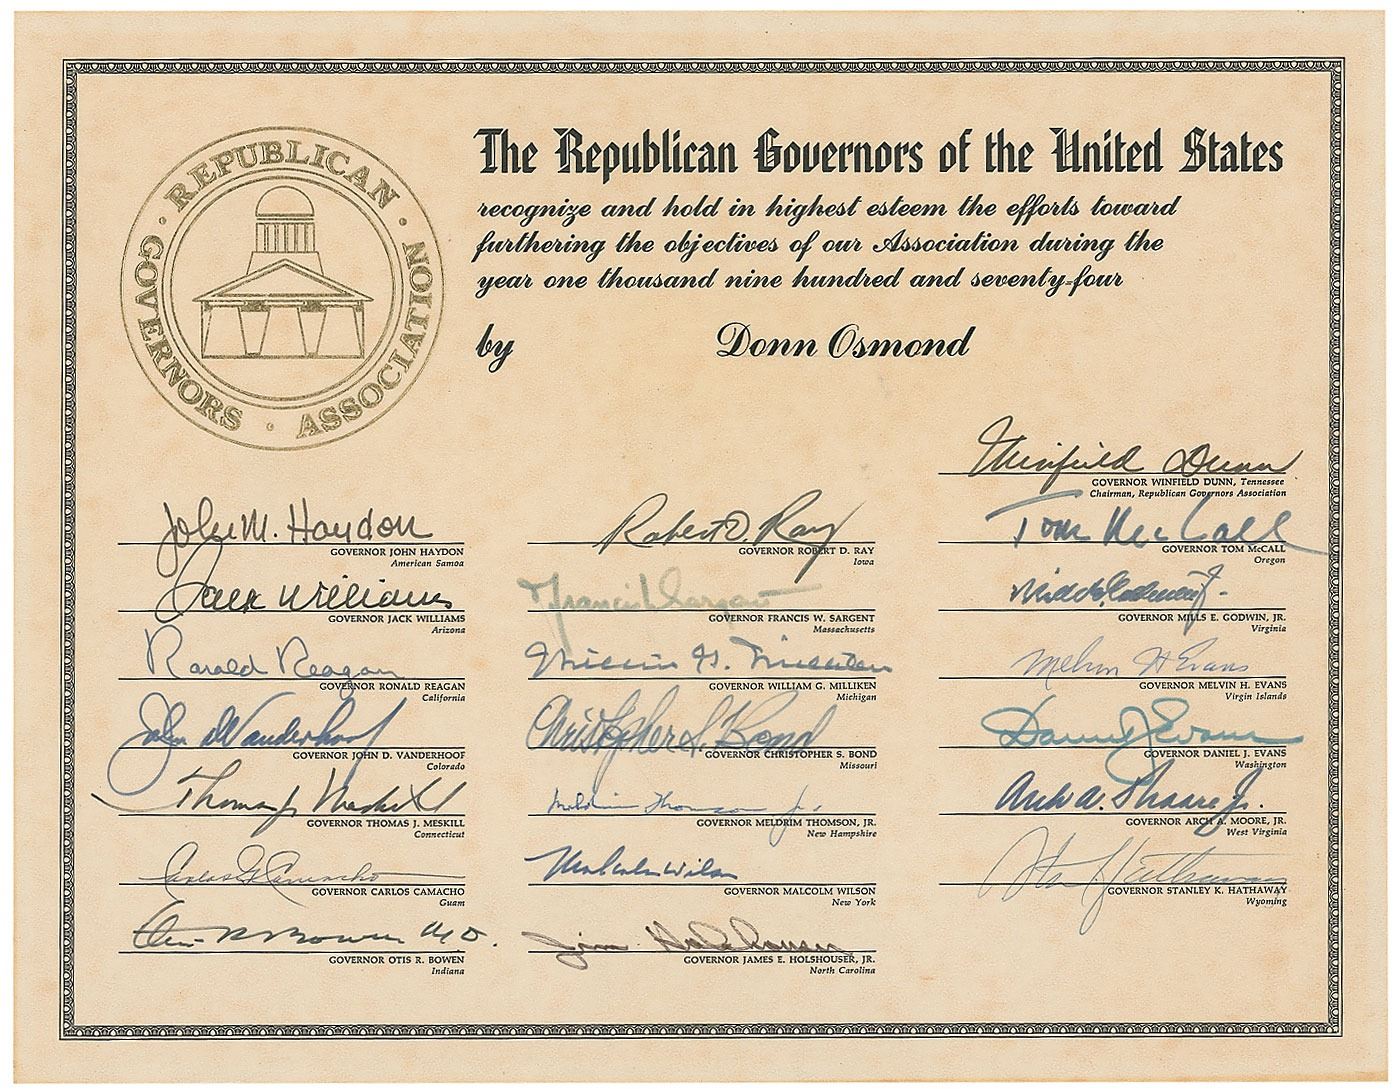 REPUBLICAN GOVERNORS ASSOCIATION
The Republican Governors of the United States
recognize and hold in highest esteem the efforts toward
furthering the objectives of our Association during the
year one thousand nine hundred and seventy-four
by Donn Osmond
Winfield Dunn
GOVERNOR WINFIELD DUNN, Tennessee
Chairman, Republican Governors Association
John M. Haydon
GOVERNOR JOHN HAYDON
American Samoa
Jack Williams
GOVERNOR JACK WILLIAMS
Arizona
Ronald Reagan
GOVERNOR RONALD REAGAN
California
John D. Vanderhoof
GOVERNOR JOHN D. VANDERHOOF
Colorado
Thomas J. Meskill
GOVERNOR THOMAS J. MESKILL
Connecticut
Carlos G. Camacho
GOVERNOR CARLOS CAMACHO
Guam
Otis R Bowen M.D.
GOVERNOR OTIS R. BOWEN
Indiana
Robert D. Ray
GOVERNOR ROBERT D. RAY
Iowa
Francis W Sargent
GOVERNOR FRANCIS W. SARGENT
Massachusetts
William G. Milliken
GOVERNOR WILLIAM G. MILLIKEN
Michigan
Christopher S. Bond
GOVERNOR CHRISTOPHER S. BOND
Missouri
Meldrim Thomson Jr.
GOVERNOR MELDRIM THOMSON, JR.
New Hampshire
Malcolm Wilson
GOVERNOR MALCOLM WILSON
New York
Jim Holshouser
GOVERNOR JAMES E. HOLSHOUSER, JR.
North Carolina
Tom McCall
GOVERNOR TOM McCALL
Oregon
Mills E. Godwin Jr.
GOVERNOR MILLS E. GODWIN, JR.
Virginia
Melvin H Evans
GOVERNOR MELVIN H. EVANS
Virgin Islands
Daniel J. Evans
GOVERNOR DANIEL J. EVANS
Washington
Arch A. Moore Jr.
GOVERNOR ARCH A. MOORE, JR.
West Virginia
Stan Hathaway
GOVERNOR STANLEY K. HATHAWAY
Wyoming